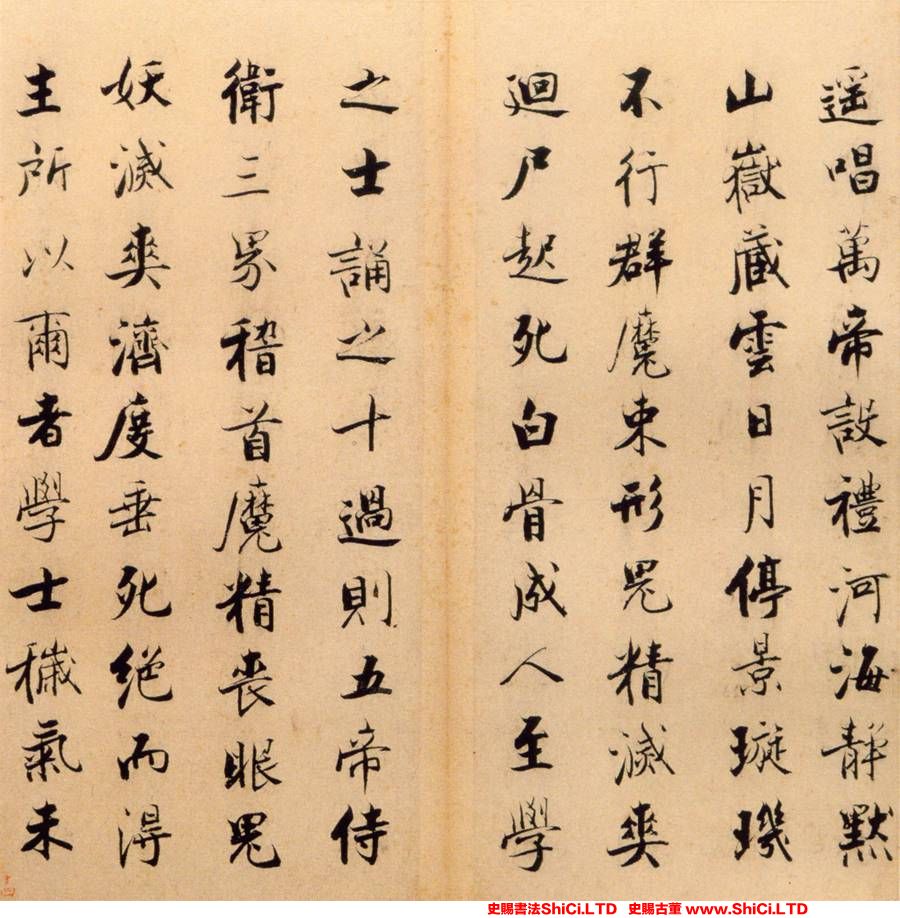 遥唱萬帝設禮河海靜默
山嶽藏雲日月停景璇璣
不行群魔束形鬼精滅爽
迴尸起死白骨成人至學
之士誦之十過則五帝侍
衛三界稽首魔精喪眼鬼
妖滅爽濟度垂死絕而淂
主所以爾者學士穢氣未
十四
史賜書法ShiCi.LTD 史賜古董 www.ShiCi.LTD